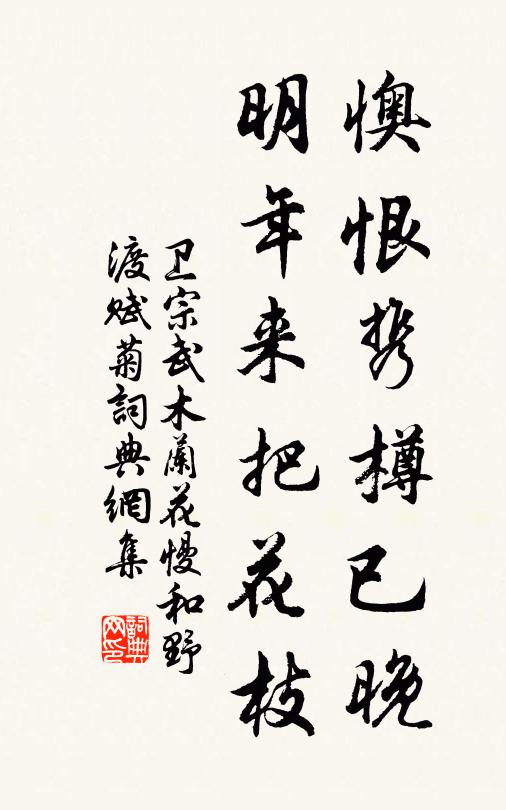 懊恨携樽已晚
明年来把花枝
卫宗武木蘭花慢和野
渡赋菊詞典網集
詞典
网印